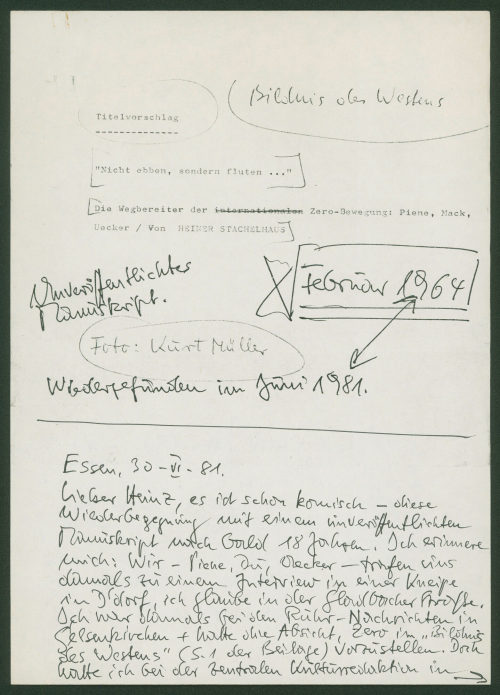 Bildnis des Westens
Titelvorschlag
"Nicht ebben, sondern fluten ..."
Die Wegbereiter der internationalen Zero-Bewegung: Piene, Mack,
Uecker / Von HEINER STACHELHAUS
Februar 1964
Unveröffentlichtes
Manuskript.
Foto: Kurt Müller
Wiedergefunden im Juni 1981.
Essen, 30-VI-81.
Lieber Heinz, es ist schon komisch – diese
Wiederbegegnung mit einem unveröffentlichten
Manuskript nach bald 18 Jahren. Ich erinnere
mich: Wir – Piene, Du, Uecker – trafen uns
damals zu einem Interview in einer Kneipe
in D'dorf, ich glaube in der Gladbacher Straße.
Ich war damals bei den Ruhr-Nachrichten in
Gelsenkirchen + hatte die Absicht, Zero im „Bildnis
des Westens" (S. 1 der Beilage) vorzustellen. Doch
hatte ich bei der zentralen Kulturredaktion in →